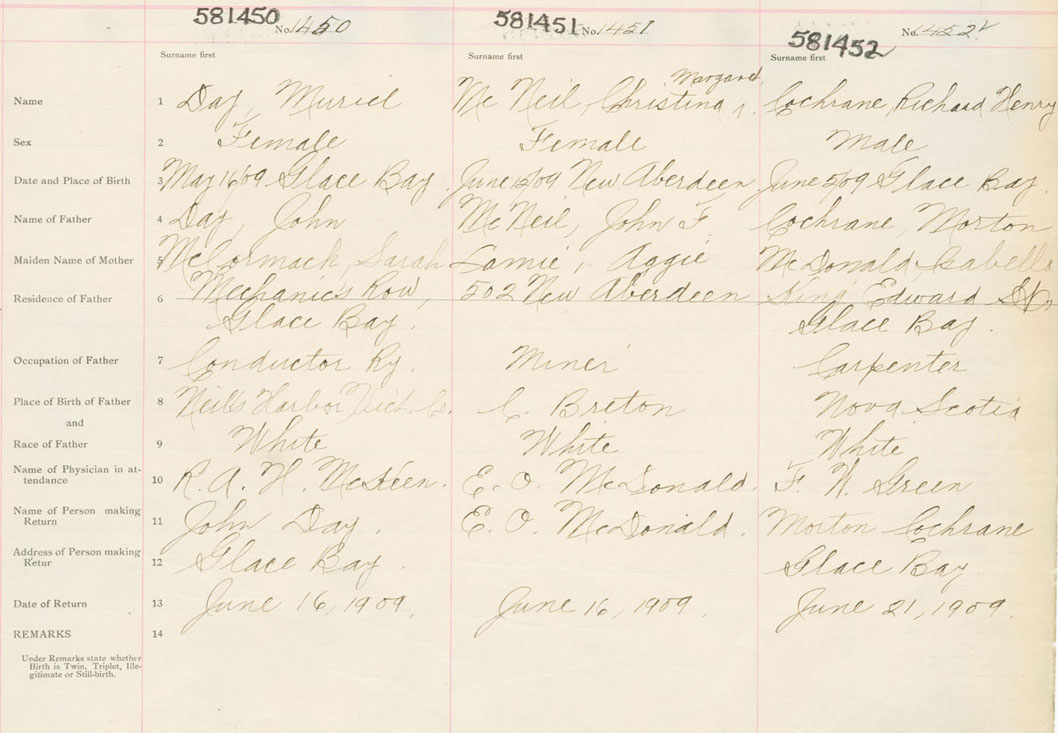 581450 No. 1450 581451 No. 1451 581452 No. 1452
Surname first Surname first Surname first
Name 1 Day, Muriel Mc Neil, Christina Margaret Cochrane, Richard Henry
Sex 2 Female Female Male
Date and Place of Birth 3 May 16/09 Glace Bay. June 09 New Aberdeen June 5/09 Glace Bay.
Name of Father 4 Day, John Mc Neil, John F. Cochrane, Morton
Maiden Name of Mother 5 McCormack, Sarah Lamie, Aggie McDonald Isabella
Residence of Father 6 Mechanic's Row, 502 New Aberdeen King Edward St,
Glace Bay. Glace Bay.
Occupation of Father 7 Conductor Ry. Miner Carpenter
Place of Birth of Father 8 Neil's Harbor Vict. Co. C. Breton Nova Scotia
and
Race of Father 9 White White White
Name of Physician in at-
tendance 10 R. A. H. McKeen. E. O. McDonald. F. W. Green
Name of Person making
Return 11 John Day. E. O. McDonald. Morton Cochrane
Address of Person making
Retur 12 Glace Bay. Glace Bay.
Date of Return 13 June 16, 1909. June 16, 1909. June 21, 1909.
REMARKS 14
Under Remarks state whether
Birth is Twin, Triplet, Ille-
gitimate or Still-birth.